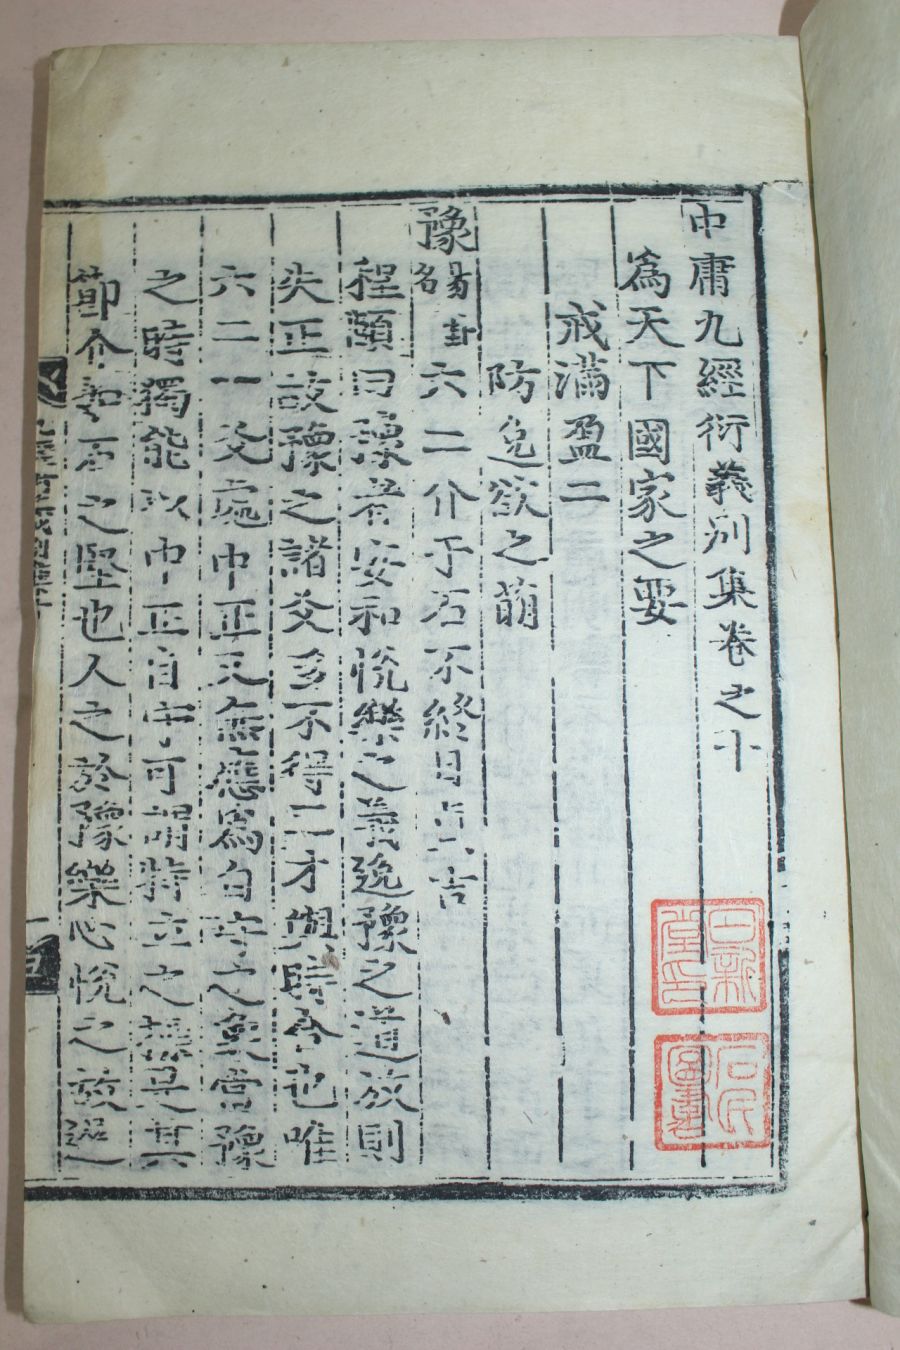 中庸九經衍義別集卷之十
爲天下國家之要
戒滿盈二
防逸欲之萌
豫易卦名六二介于石不終日貞吉
程頤曰豫者安和悅樂之義逸豫之道放則
失正故豫之諸爻多不得正才與時合也唯
六二一爻處中正又無應爲自守之象當豫
之時獨能以中正自守可謂特立之操是其
節介如石之堅也人之於豫樂心悅之故遲
日新堂
石氏圖書